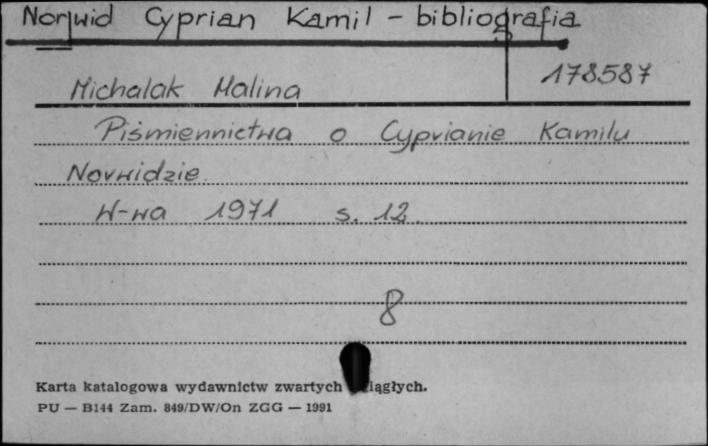 Norwid Cyprian Kamil - bibliografia
Michalak Halina 178587
Piśmiennictwa o Cyprianie Kamilu
Norwidzie.
W-wa 1971 s. 12.
8
Karta katalogowa wydawnictw zwartych
PU — B144 Zam. 849/DW/On ZGG — 1991